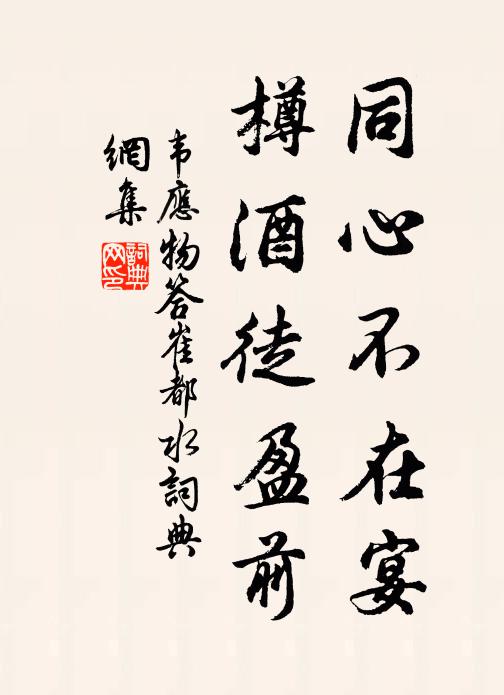 同心不在宴
樽酒徒盈前
韦應物答崔都水詞典
網集
詞典网印